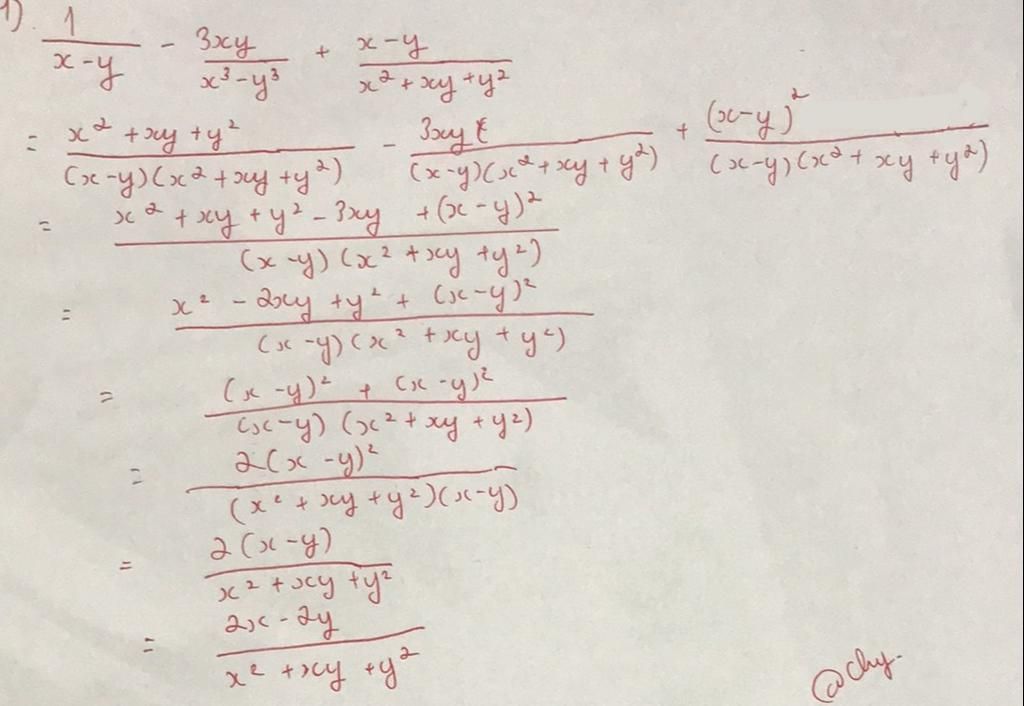 1) 1/(x-y) - 3xy/(x³-y³) + (x-y)/(x²+xy+y²)
= (x²+xy+y²)/((x-y)(x²+xy+y²)) - 3xy/((x-y)(x²+xy+y²)) + (x-y)²/((x-y)(x²+xy+y²))
= (x²+xy+y²-3xy+(x-y)²)/((x-y)(x²+xy+y²))
= (x²-2xy+y²+(x-y)²)/((x-y)(x²+xy+y²))
= ((x-y)²+(x-y)²)/((x-y)(x²+xy+y²))
= 2(x-y)²/((x²+xy+y²)(x-y))
= 2(x-y)/(x²+xy+y²)
= (2x-2y)/(x²+xy+y²)
@chy.